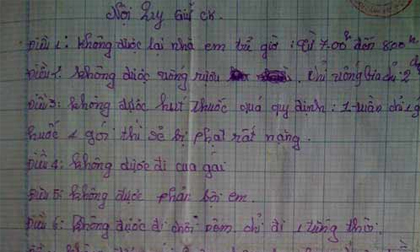 Nội Quy Giữ CK.
Điều 1: Không được lại nhà em trễ giờ: Từ 7.00h đến 8.00h
Điều 2: Không được uống rượu. Chỉ uống bia chỉ: 2
Điều 3: Không được hút thuốc quá quy định: 1 tuần chỉ
thuốc 2 gói thì sẽ bị phạt rất nặng.
Điều 4: Không được đi cua gái
Điều 5: Không được phản bội em.
Điều 6: Không được đi chơi đêm. chỉ đi